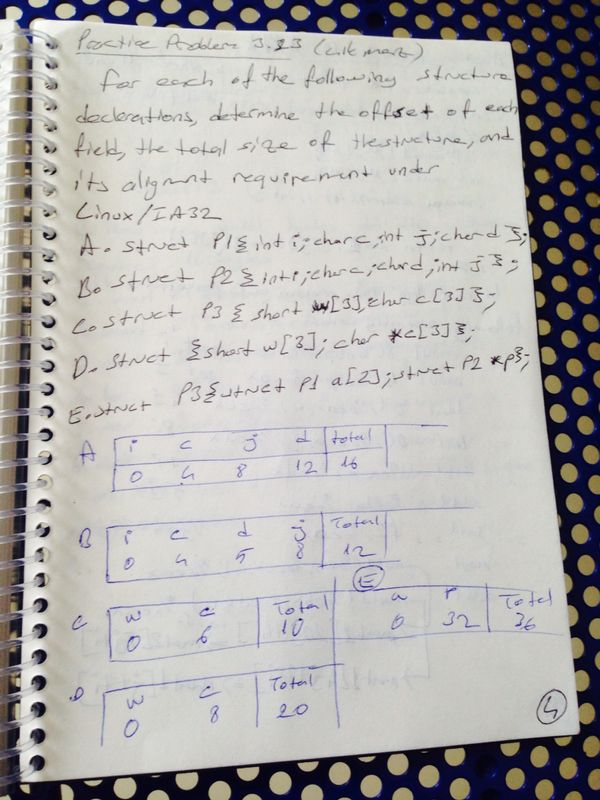 Practice Problem 3.23 (
For each of the following structure
declerations, determine the offset of each
field, the total size of the structure, and
its aligment requirement under
Linux/IA32
A. struct P1 { int i; char c, int j; char d };
B. struct P2 { int i; char c; char d, int j };
C. struct P3 { short w[3], char c[3] };
D. struct { short w[3]; char *c[3] };
E. struct P3 { struct P1 a[2]; struct P2 *p };
A i c j d total
0 4 8 12 16
B i c d j Total
0 4 5 8 12
C w c Total
0 6 10
E a p Total
0 32 36
D w c Total
0 8 20
4